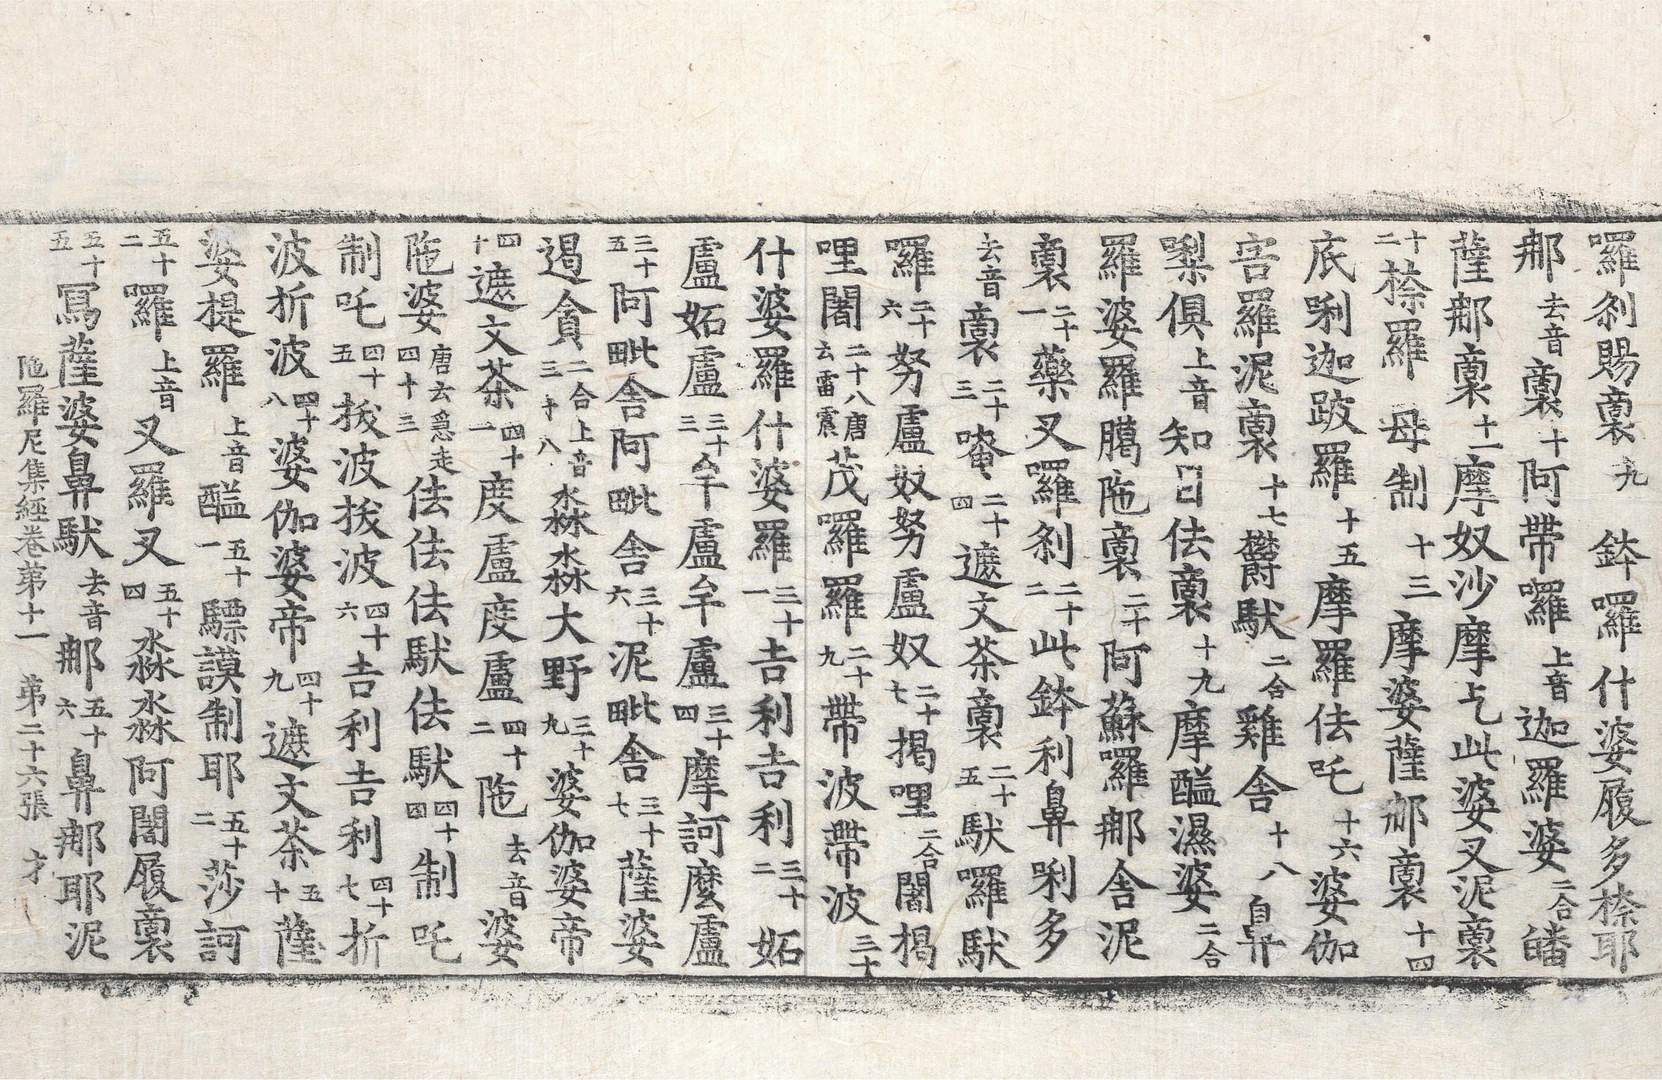 囉剎賜裔九 鉢囉什婆履多捺耶
那去音裔十阿帶囉上音迦羅婆二合皤
薩那裔十一摩奴沙摩乞叱婆叉泥裔
十二捺羅 母制十三 摩婆薩那裔十四
底唎迦跛羅十五摩羅佉吒十六婆伽
害羅泥裔十七欝馱二合雞舍十八鼻
㗚俱上音知曰佉裔十九摩醯濕婆二合
羅婆羅臈陁裔二十阿蘇囉那舍泥
裔二十一藥叉囉剎二十二叱鉢利鼻唎多
去音裔二十三唵二十四遮文茶裔二十五馱囉馱
囉二十六努盧奴努盧奴二十七揭哩二合闇揭
哩闇二十八唐云雷震茂囉羅二十九帶波帶波三十
什婆羅什婆羅三十一吉利吉利三十二妬
盧妬盧三十三牟盧牟盧三十四摩訶麼盧
三十五阿毗舍阿毗舍三十六泥毗舍三十七薩婆
遏貪二合上音三十八淼淼大野三十九婆伽婆帝
四十遮文茶四十一度盧度盧四十二陁去音婆
陁婆唐云急走四十三佉佉佉馱佉馱四十四制吒
制吒四十五拔波拔波四十六吉利吉利四十七折
波折波四十八婆伽婆帝四十九遮文茶五十薩
婆提羅上音醯五十一驃謨制耶五十二莎訶
五十二囉上音叉羅叉五十四淼淼阿闇履裔
五十五冩薩婆鼻馱去音那五十六鼻那耶泥
陁羅尼集經卷第十一 第二十六張 才